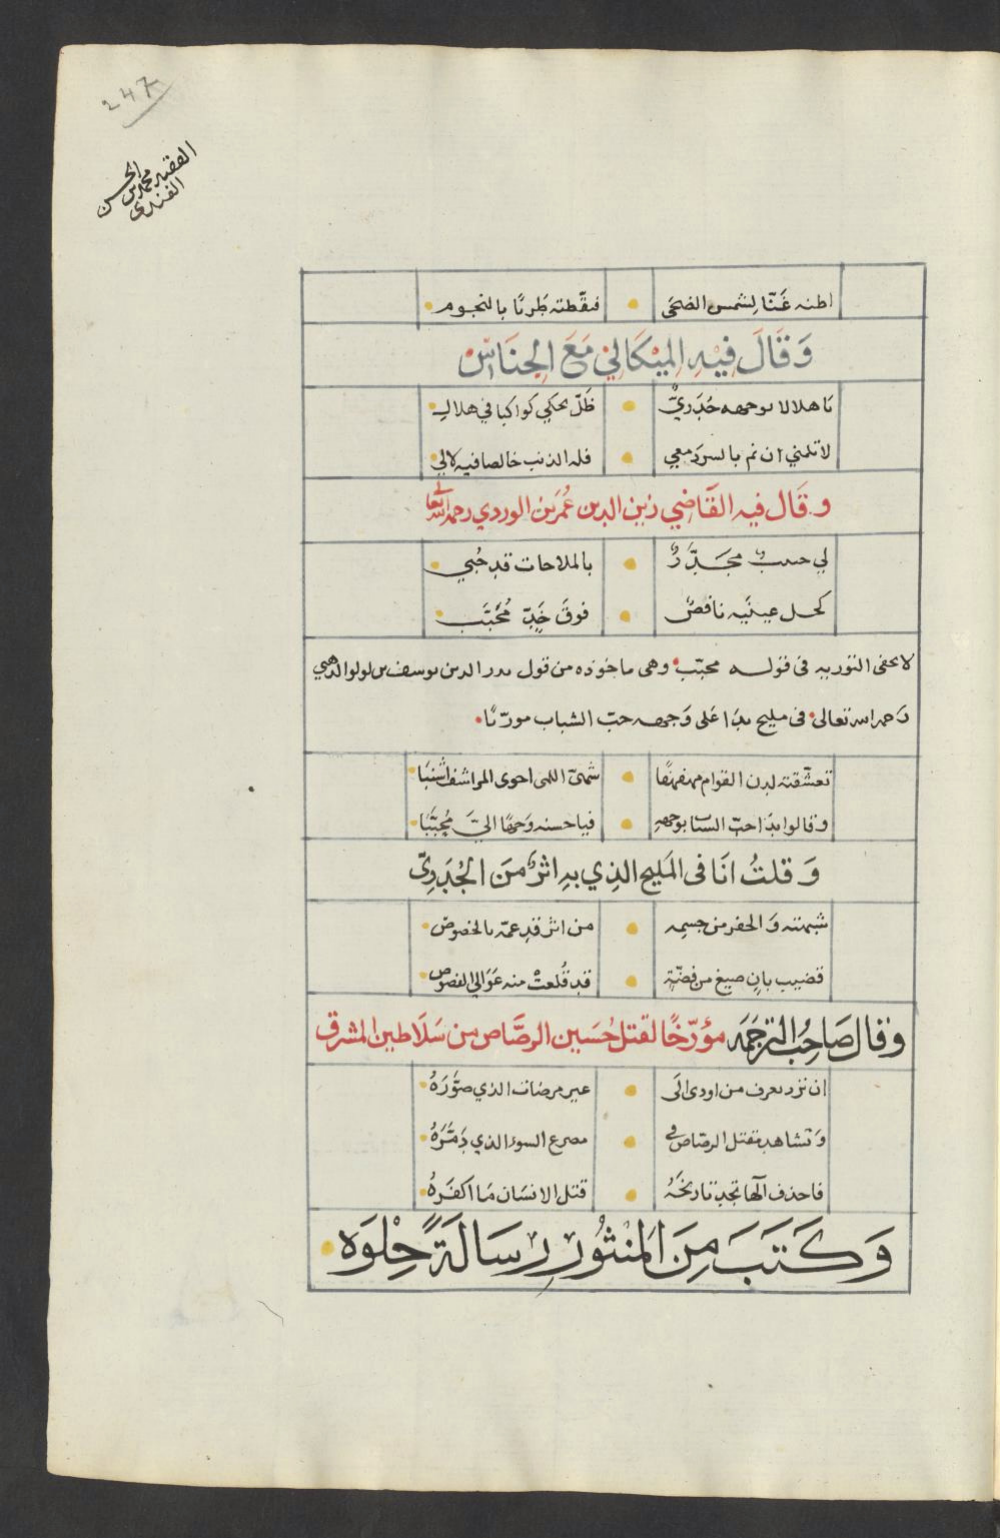 247
الفقيه محمد بن الحسن
الفندي
اظنه غَنّا لشمس الضحى • فنقّطته طربًا بالنجوم •
وَقَالَ فِيهِ المِيْكَالِي مَعَ الجِنَاسْ
يَا هلالا بوجهه جُدَريٌّ • ظَلّ يحكي كواكبا في هلالِ •
لا تلمني ان نم بالسر دمعي • فله الذنب خالصا فيه لالي •
وقَال فيه القَاضِي زين الدين عُمَر بن الوردي رحمه الله تعالى
لي حبيبٌ مجَدَّرٌ • بالملاحات قد حُبي •
كحل عينَيه نافضٌ • فوقَ خَدٍّ مُحَبَّب •
لا يخفى التوريه فى قوله محبّب • وهى ماخوذه من قول بدر الدين يوسف بن لولو الذهبي
رَحمه الله تعالى • فى مليح بدَا عَلى وَجهه حبّ الشباب مورّيًا •
تعشّقته لدن القوام مهفهفًا • شهىّ اللمى احوى المراشف اشنبَا •
وقالوا بدَا حبّ الشباب بوجههِ • فيا حسنه وَجهًا اليَّ مُحبَّبَا •
وَقلتُ انَا فى المَليح الذِي بهِ اثرٌ منَ الجُدَرِيّ
شبهته وَالحفر من جسمِه • من اثر قد عمّه بالخصوصْ •
قضيب بانٍ صيغ من فضّةٍ • قد قُلعتْ منه غَوَالي الفصوص •
وَقَال صَاحِبُ الترجَمَه مؤرّخًا لقتل حُسَين الرصَّاص من سَلَاطين المشرق
ان ترد تعرف من اودى الَى • غير مرضات الذي صَوَّرَهُ •
وَتشاهد بقتل الرصّاص في • مصرع السوء الذي دَمَّرَهُ •
فاحذف الها تجد تاريخَهُ • قتل الانسَان مَا اكفَرهُ •
وَكَتَبَ مِنَ المَنْثُورِ رِسَالَةً حِلْوَه •